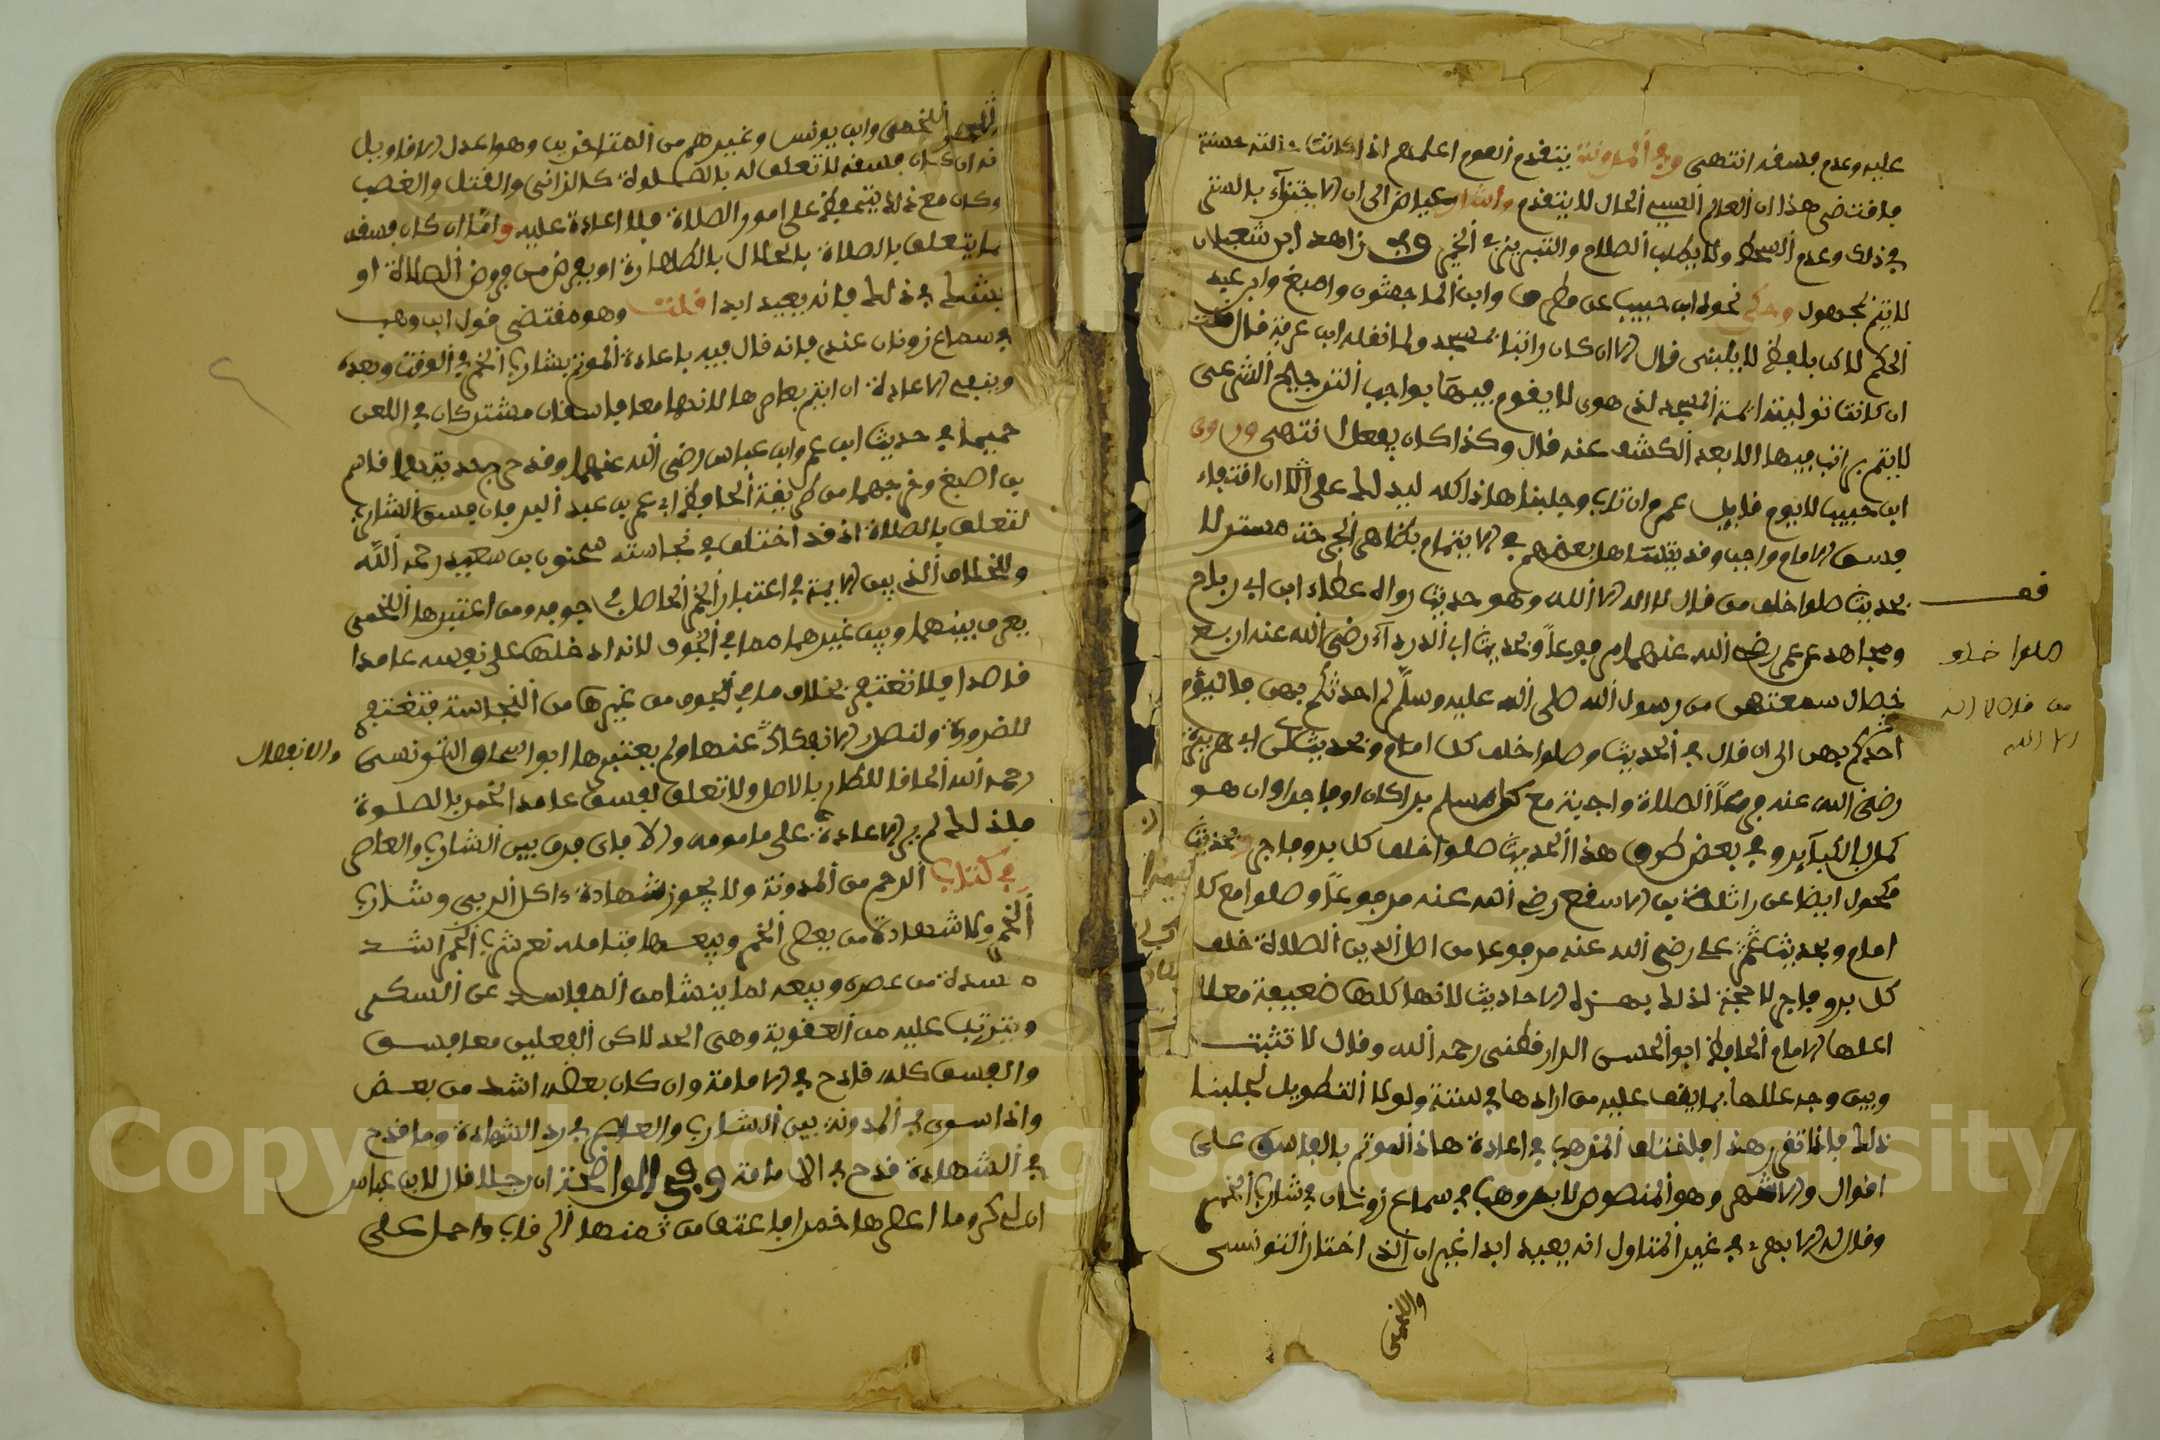 عليه وعدم فسقه انتهى وفي المدونة يتقدم القوم اعلمهم اذا كانت حالته حسنة
فاقتضى هذا ان العالم السيئ الحال لا يتقدم واشار عياض الى ان الاجتزاء بالستر
في ذلك وعدم السخط ولا يطلب الصلاح والتبريز في الخير وفي زاهد ابن شعبان
لا يؤتم بمجهول وحكى نحوه ابن حبيب عن مطرف وابن الماجشون واصبغ وابن عبد
الحكم لاكن بلفظ لا ينبغي قال الا ان كان راتبا بمسجد ولما نقله ابن عرفة قال قلت
ان كانت تولية ائمة المسجد لذي هوى لا يقوم فيها بواجب الترجيح الشرعي
لا يؤتم براتب فيها الا بعد الكشف عنه قال وكذا كان يفعل انتهى وروى
ابن حبيب لا يؤم قاتل عمد وان تاب وجلبنا هاذا كله ليدل على ان انتفاء
فسق الامام واجب وقد يتساهل بعضهم في الايتمام بظاهر الجرحة مستدلا
بحديث صلوا خلف من قال لا اله الا الله وهو حديث رواه عطاء ابن ابي رباح
ومجاهد عن عمر رضي الله عنهما مرفوعا وبحديث ابي الدرداء رضي الله عنه اربع
خصال سمعتهن من رسول الله صلى الله عليه وسلم لم احدثكم بهن فاليوم
احدثكم بهن الى ان قال في الحديث وصلوا خلف كل امام وبحديث ابي هريرة
رضي الله عنه الصلاة واجبة مع كل مسلم برا كان او فاجرا وان هو
عمل بالكبآير وفي بعض طرق هذا الحديث صلوا خلف كل بر وفاجر وبحديث
مكحول ايضا عن واثلة بن الاسقع رضي الله عنه مرفوعا وصلوا مع كل
امام وبحديث علي رضي الله عنه مرفوعا من اصل الدين الصلاة خلف
كل بر وفاجر لا حجة لذلك بهذه الاحاديث لانها كلها ضعيفة معلة
اعلها الامام الحافظ ابو الحسن الدارقطني رحمه الله وقال لا تثبت
وبين وجه عللها بما يقف عليه من ارادها في سننه ولولا التطويل لجلبنا
ذلك فاذا تقرر هذا فاختلف المذهب في اعادة هاذ المؤتم بالفاسق على
اقوال والاشهر وهو المنصوص لابن وهب في سماع زونان في شارب الخمر
وقال الابهري في غير المتاول انه يعيد ابدا غير ان الذي اختار التونسي
واللخمي
قف
صلوا خلف
من قال لا اله
الا الله
اللخمي وابن يونس وغيرهم من المتاخرين وهو اعدل الاقاويل
انه ان كان فسقه لا تعلق له بالصلوة كالزاني والقتل والغصب
وكان مع ذلك يتحفظ على امور الصلاة فلا اعادة عليه واما ان كان فسقه
ما يتعلق بالصلاة بالحال بالطهارة او بفرض من فروض الصلاة او
يشك في ذلك فانه يعيد ابدا قلت وهو مقتضى قول ابن وهب
في سماع زونان عنده فانه قال فيه باعادة المؤتم بشارب الخمر في الوقت وبعده
وينبغي الاعادة ان ائتم بعاصرها لانهما معا فاسقان مشتركان في اللعن
حسبما في حديث ابن عمر وابن عباس رضي الله عنهما وقد خرج حديثهما قاسم
بن اصبغ وخرجهما من طريقه الحافظ ابو عمر بن عبد البر فان فسق الشارب
لتعلق بالصلاة اذ قد اختلف في نجاسته سحنون بن سعيد رحمه الله
وللخلاف الذي بين الايمة في اعتبار الخمر الحاصل في جوفه ومن اعتبرها اللخمي
يفرق بينهما وبين غيرهما مما في الجوف لانه ادخلها على نفسه عامدا
قاصدا فلا تغتفر بخلاف ما في الجوف من غيرها من النجاسة فتغتفر
للضرورة ولتعذر الانفكاك عنها ولم يعتبرها ابو اسحاق التونسي
والانفصال
رحمه الله الحاقا للطارئ بالاصل ولا تعلق لفسق عامد الخمر بالصلوة
فلذلك لم ير الاعادة على مامومه والا فاي فرق بين الشارب والعاصر
وفي كتاب الرجم من المدونة ولا يجوز شهادة ءاكل الربى وشارب
الخمر ولا شهادة من يعصر الخمر ويبيعها فتامله نعم شرب الخمر اشد
مفسدة من عصره وبيعه لما ينشا من المفاسد عن السكر
ويترتب عليه من العقوبة وهي الحد لاكن الفعلين معا فسق
والفسق كله قادح في الامامة وان كان بعضه اشد من بعض
واذا سوى في المدونة بين الشارب والعاصر في رد الشهادة وما قدح
في الشهادة قدح في الامامة وفي الواضحة ان رجلا قال لابن عباس
ان لي كروما اعصرها خمرا فاعتق من ثمنها الرقاب واحمل على
Copyright © King Saud University